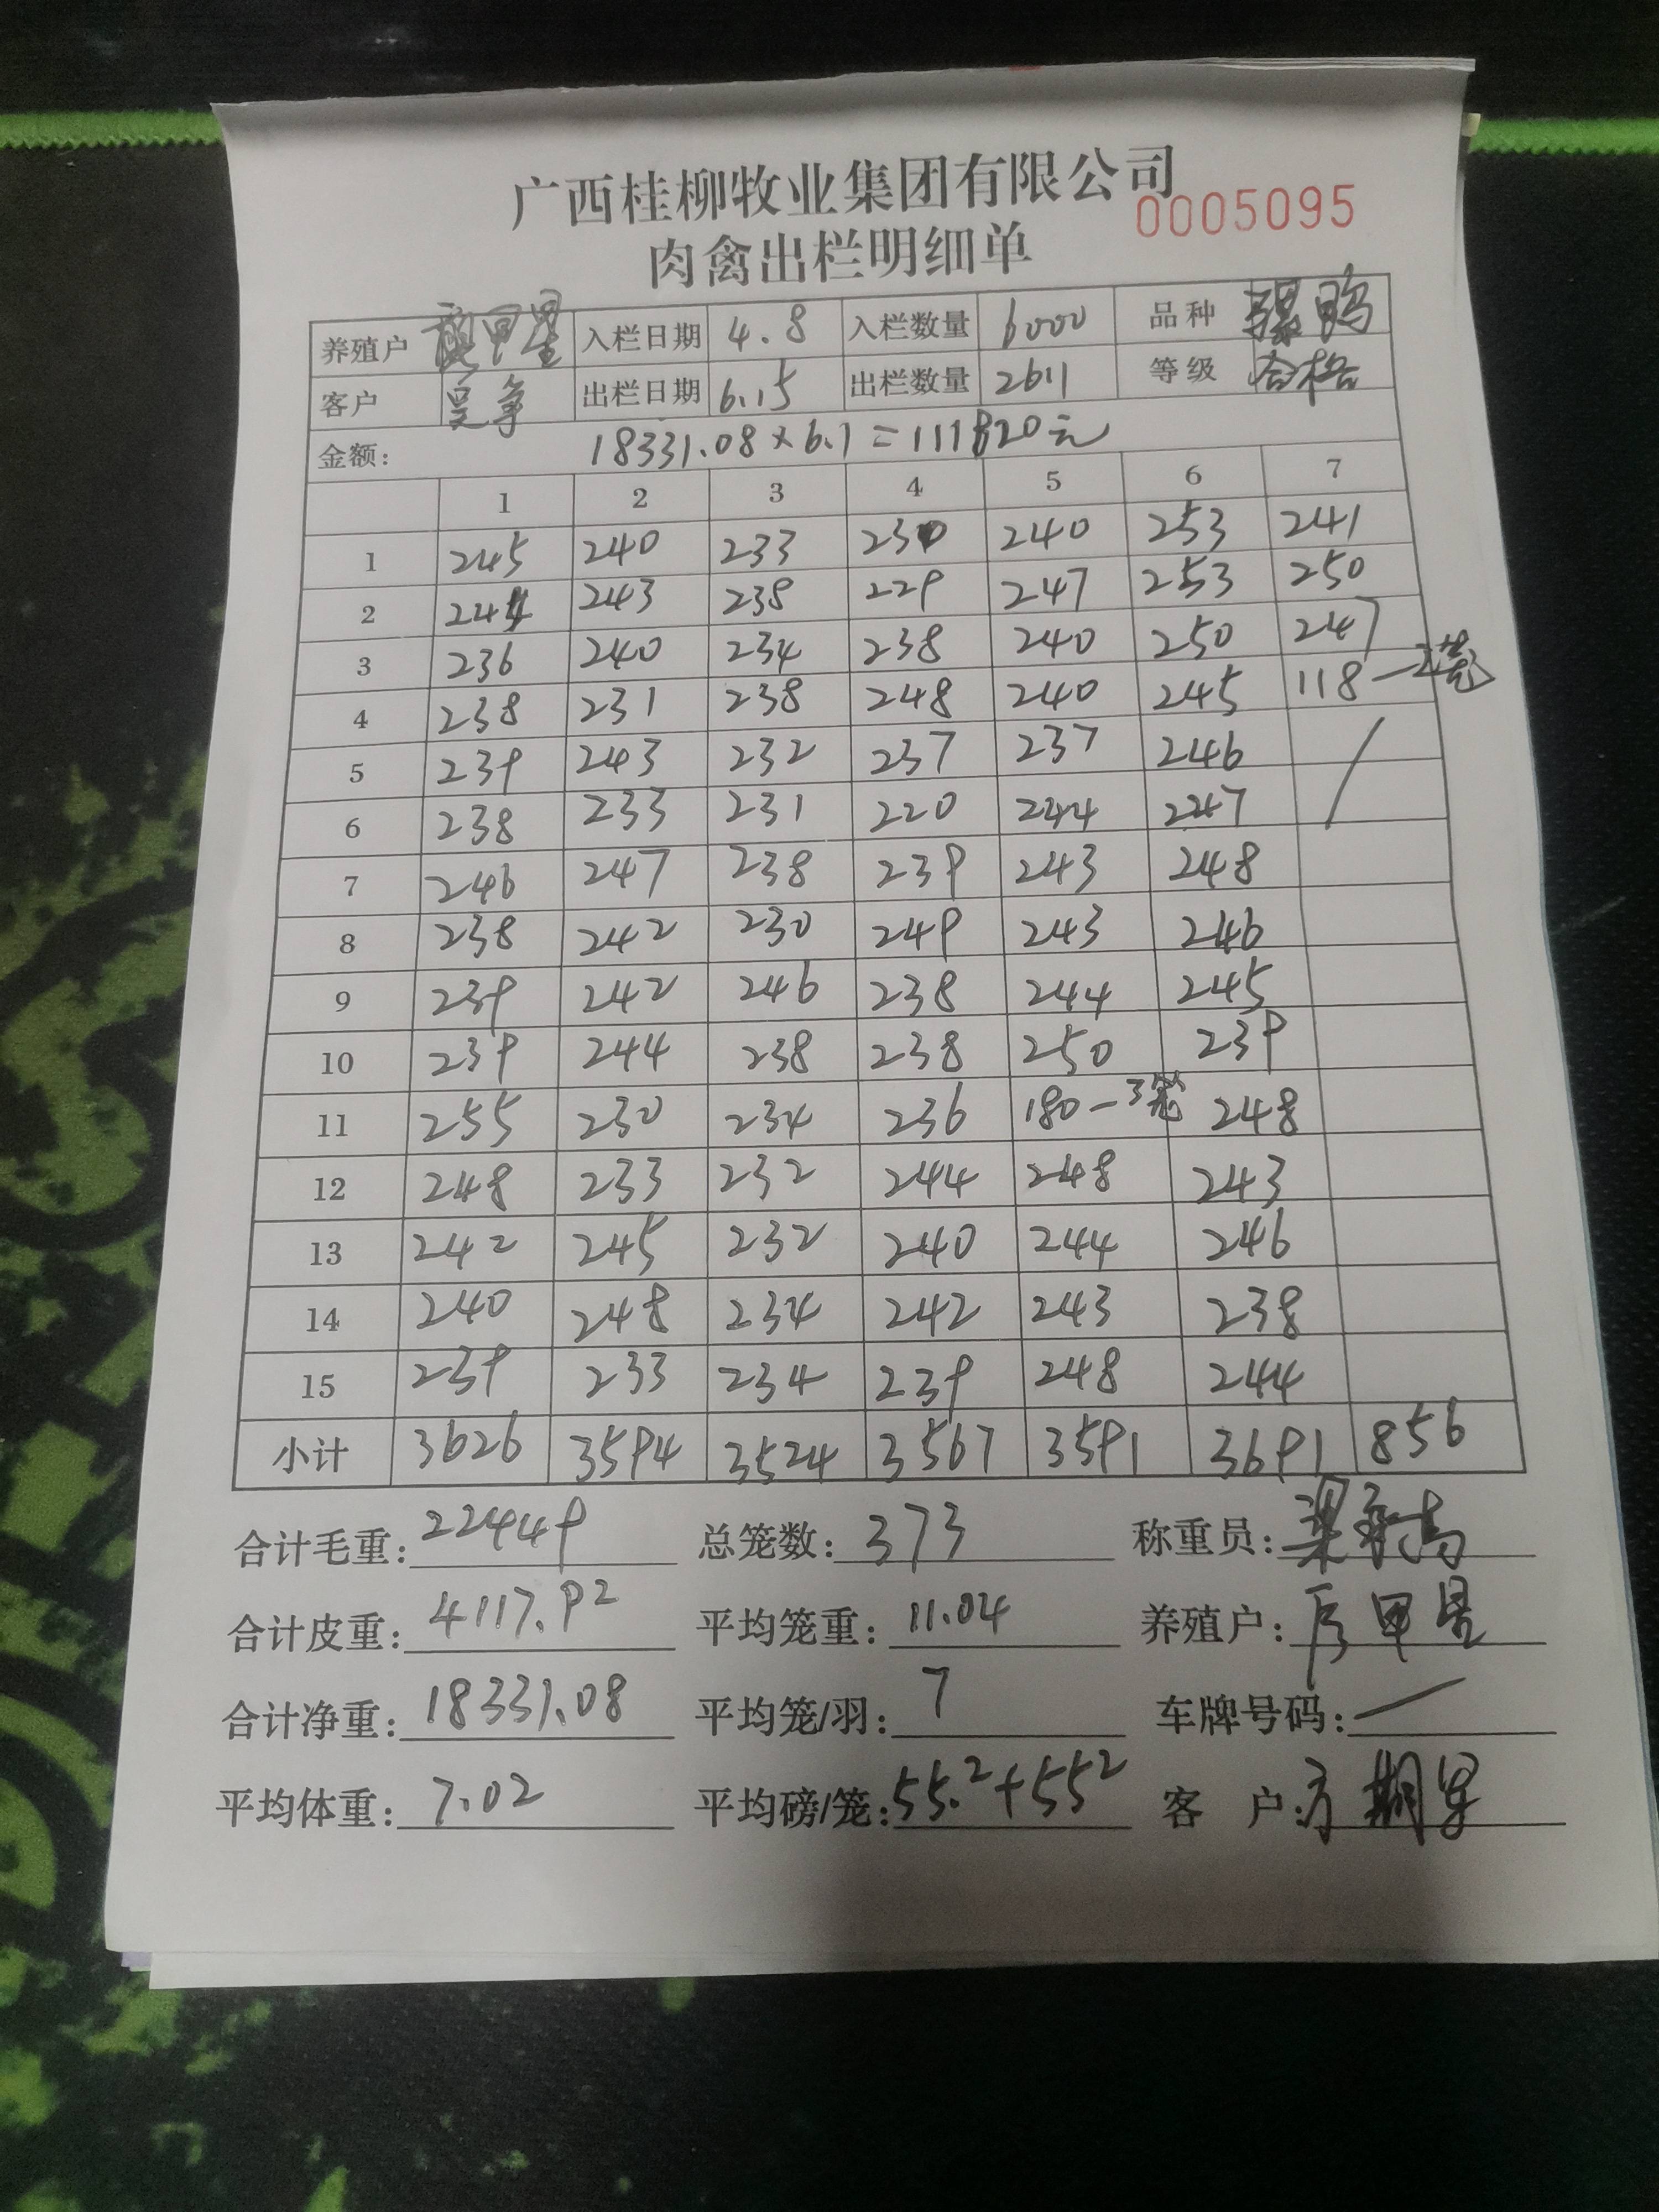 广西桂柳牧业集团有限公司
0005095
肉禽出栏明细单
养殖户 甲星 入栏日期 4.8 入栏数量 6000 品种 骡鸭
客户 吴争 出栏日期 6.15 出栏数量 2611 等级 合格
金额: 18331.08×6.1=111820元
1 2 3 4 5 6 7
1 245 240 233 230 240 253 241
2 244 243 238 229 247 253 250
3 236 240 234 238 240 250 247
4 238 231 238 248 240 245 118-2笼
5 239 243 232 237 237 246 /
6 238 233 231 220 244 247
7 246 247 238 239 243 248
8 238 242 230 249 243 246
9 239 242 246 238 244 245
10 239 244 238 238 250 239
11 255 230 234 236 180-3笼 248
12 248 233 232 244 248 243
13 242 245 232 240 244 246
14 240 248 234 242 243 238
15 239 233 234 239 248 244
小计 3626 3594 3524 3567 3591 3691 856
合计毛重: 22449 总笼数: 373 称重员: 梁
合计皮重: 4117.92 平均笼重: 11.04 养殖户: 甲星
合计净重: 18331.08 平均笼/羽: 7 车牌号码: /
平均体重: 7.02 平均磅/笼: 55.2+55.2 客 户: